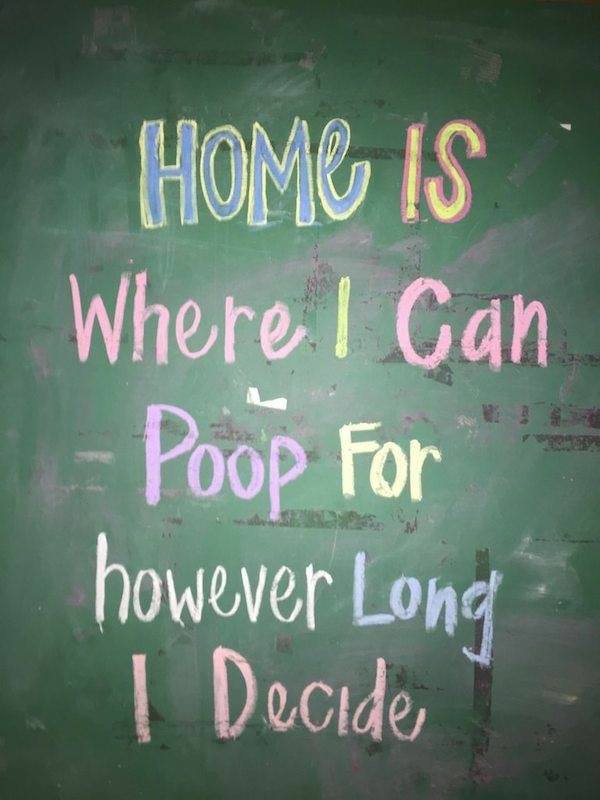 HOMe IS
Where I Can
Poop For
however Long
I Decide